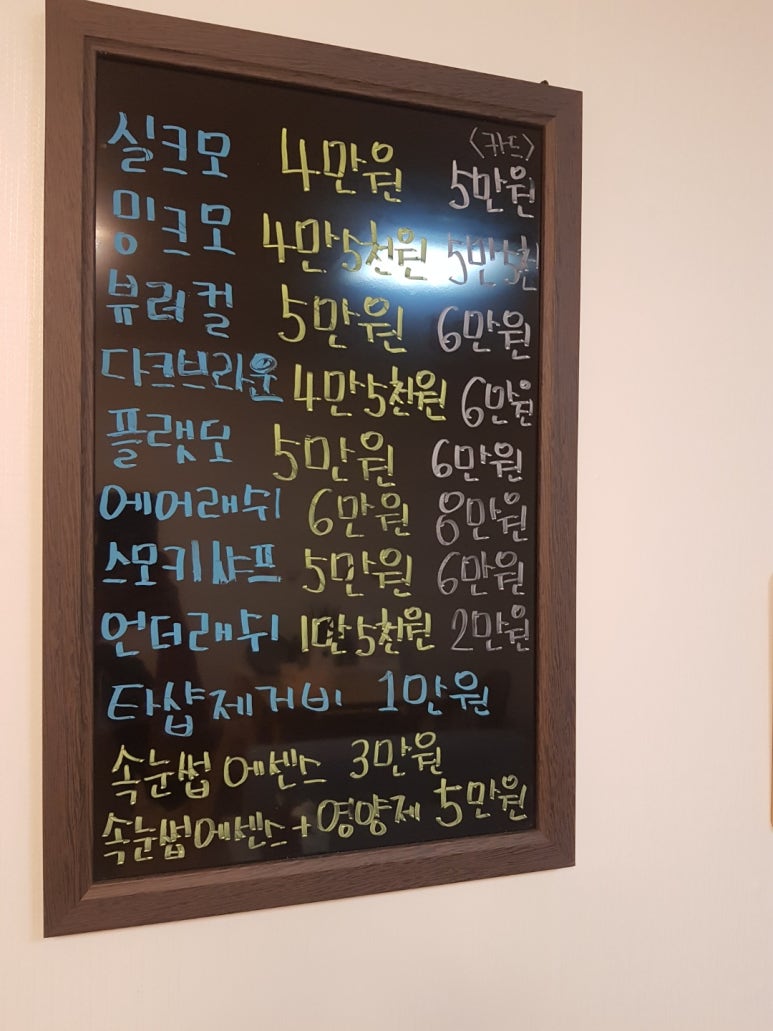 <카드>
실크모 4만원 5만원
밍크모 4만5천원 5만5천
뷰러컬 5만원 6만원
다크브라운 4만5천원 6만원
플랫모 5만원 6만원
에어래쉬 6만원 8만원
스모키샤프 5만원 6만원
언더래쉬 1만5천원 2만원
타샵제거비 1만원
속눈썹에센스 3만원
속눈썹에센스+영양제 5만원